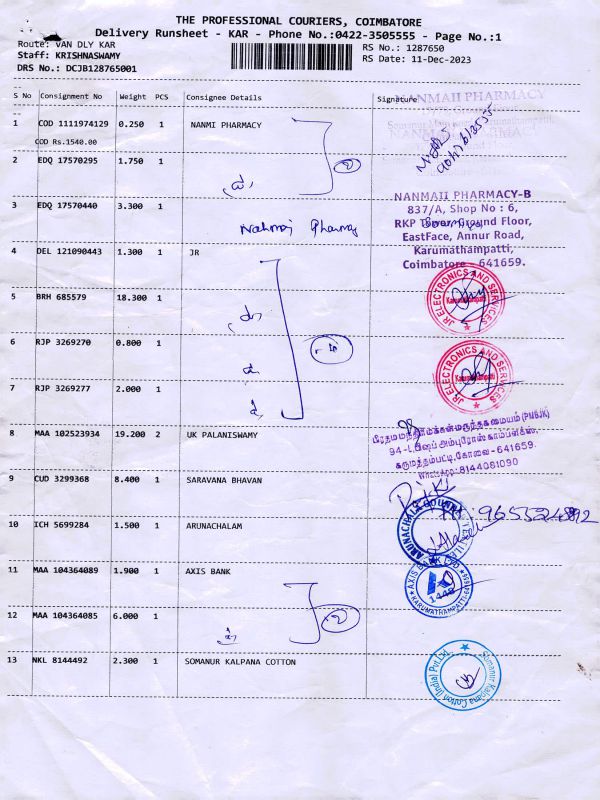 THE PROFESSIONAL COURIERS, COIMBATORE
Delivery Runsheet - KAR - Phone No.:0422-3505555 - Page No.:1
Route: VAN DLY KAR
RS No.: 1287650
Staff: KRISHNASWAMY
RS Date: 11-Dec-2023
DRS No.: DCJB128765001
S No Consignment No Weight PCS Consignee Details Signature
1 COD 1111974129 0.250 1 NANMI PHARMACY
COD Rs.1540.00
NANMAII PHARMACY
2 EDQ 17570295 1.750 1
3 EDQ 17570440 3.300 1
NANMAII PHARMACY-B
837/A, Shop No : 6,
RKP Tower, Ground Floor,
EastFace, Annur Road,
Karumathampatti,
Coimbatore - 641659.
4 DEL 121090443 1.300 1 JR
5 BRH 685579 18.300 1
JR ELECTRONICS AND SERVICES
Karumathampatti
6 RJP 3269270 0.800 1
7 RJP 3269277 2.000 1
JR ELECTRONICS AND SERVICES
Karumathampatti
8 MAA 102523934 19.200 2 UK PALANISWAMY
94-L, பிஷப் அம்புரோஸ் காம்பளக்ஸ்,
கருமத்தம்பட்டி, கோவை - 641659.
WhatsApp : 8144081090
9 CUD 3299368 8.400 1 SARAVANA BHAVAN
10 ICH 5699284 1.500 1 ARUNACHALAM
11 MAA 104364089 1.900 1 AXIS BANK
AXIS BANK LTD
1448
KARUMATHAMPATTI
12 MAA 104364085 6.000 1
13 NKL 8144492 2.300 1 SOMANUR KALPANA COTTON
Somanur Kalpana Cotton (India) Pvt Ltd.,